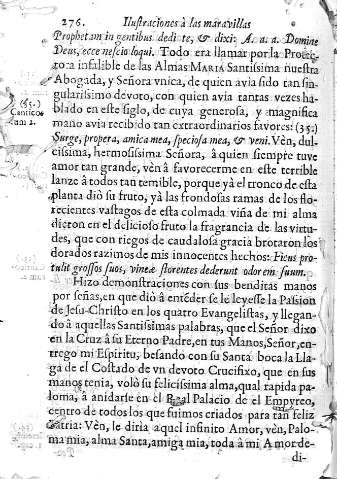 276. Ilustraciones à las maravillas
Prophetam in gentibus dedi te, & dixi: A. a. a. Domine
Deus, ecce nescio loqui. Todo era llamar por la Protec-
tora infalible de las Almas MARIA Santissima nuestra
Abogada, y Señora vnica, de quien avia sido tan sin-
gularissimo devoto, con quien avia tantas vezes ha-
blado en este siglo, de cuya generosa, y magnifica
mano avia recibido tan extraordinarios favores: (35.)
Surge, propera, amica mea, speciosa mea, & veni. Vèn, dul-
cissima, hermosissima Señora, â quien siempre tuve
amor tan grande, vèn â favorecerme en este terrible
lanze â todos tan temible, porque yà el tronco de esta
planta diò su fruto, yà las frondosas ramas de los flo-
recientes vastagos de esta colmada viña de mi alma
dieron en el delicioso fruto la fragrancia de las virtu-
des, que con riegos de caudalosa gracia brotaron los
dorados razimos de mis innocentes hechos: Ficus pro-
tulit grossos suos, vineæ florentes dederunt odorem suum.
Hizo demonstraciones con sus benditas manos
por señas, en que diò â entẽder se le leyesse la Passion
de Jesu-Christo en los quatro Evangelistas, y llegan-
do à aquellas Santissimas palabras, que el Señor dixo
en la Cruz â su Eterno Padre, en tus Manos, Señor, en-
trego mi Espiritu, besando con su Santa boca la Lla-
ga de el Costado de vn devoto Crucifixo, que en sus
manos tenia, volò su felicissima alma, qual rapida pa-
loma, â anidarse en el Real Palacio de el Empyreo,
centro de todos los que fuimos criados para tan feliz
Patria: Vèn, le diria aquel infinito Amor, vèn, Palo-
ma mia, alma Santa, amiga mia, toda â mi Amor de-
di-
(35.)
Cantico
rum 2.